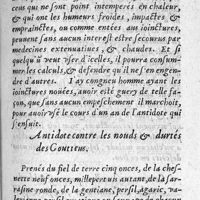 cens qui ne sont point intemperés en chaleur,
& qui ont les humeurs froides, impactes &
empraintes, ou comme entées aux iointures,
peuvent sans aucun interest estre secourus par
medecines extenuatiues, & chaudes. Et si
quelqu'ũ veut vser d'icelles, il pourra consum-
mer les calculs, & defendre qu'il ne s'en engen-
dre d'autres. I'ay congneu homme ayant les
iointures nouées, auoir esté guery de telle fa-
çon, que sans aucun empeschement il marchoit,
pour auoir vsé le cours d'un an de l'antidote qui
s'ensuit.
Antidote contre les nouds & durtés
des Goutteux.
Prenés du fiel de terre cinq onces, de la ches-
nette neuf onces, millepertuis autant, de la sar-
rasine ronde, de la gentiane, persil, agaric, va-